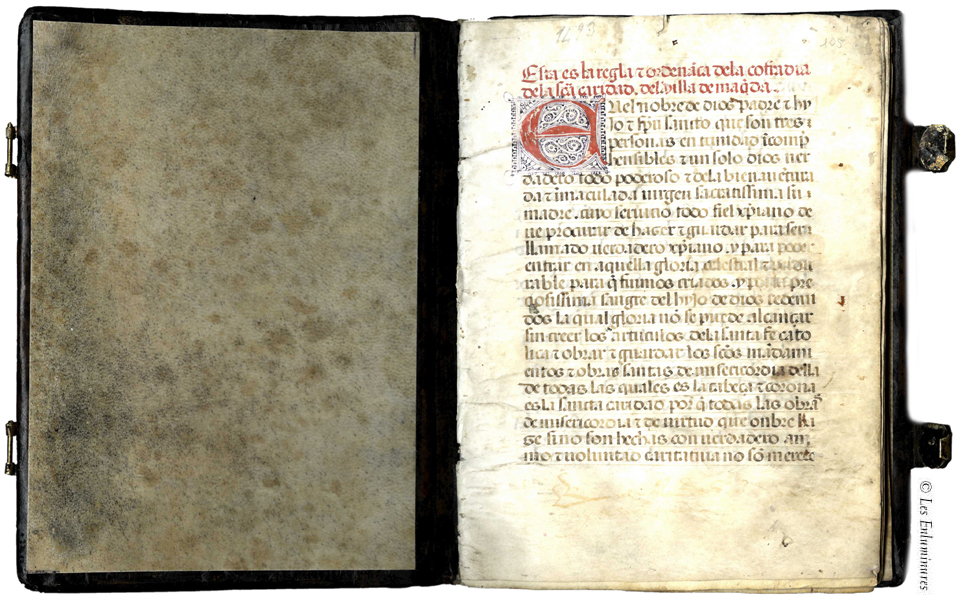 1493
105
Esta es la regla τ ordenãça dela cofradia
dela scã caridad. del villa de maq̃da.
Enel nõbre de dios padre τ hy
jo τ spũ santo que son tres
personas en trinidad ĩcomp̃
sensibles τ un solo dios ver
dadero todo poderoso τ dela bien auẽtura
da τ ĩmaculada uirgen sacratissima su
madre. cuyo seruicio todo fiel xp̃iano de
ue procurar de hazer τ guardar para ser
llamado uerdadero xp̃iano. y para poder
entrar en aquella gloria celestial τ
rable para q̃ fuimos criados. y por la pre
çiosissima sangre del hyjo de dios redemi
dos la qual gloria nõ se puede alcançar
sin creer los articulos dela santa fe cato
lica τ obrar τ guardar los scõs mãdami
entos τ obras santas de misericordia della
de todas las quales es la cabeça τ corona
es la santa caridad por q̃ todas las obrãs
de misericordia τ de uirtud que onbre ha
ge si no son hechas con uerdadero ani
mo τ uoluntad caritatiua no sõ merete
© Les Enluminures